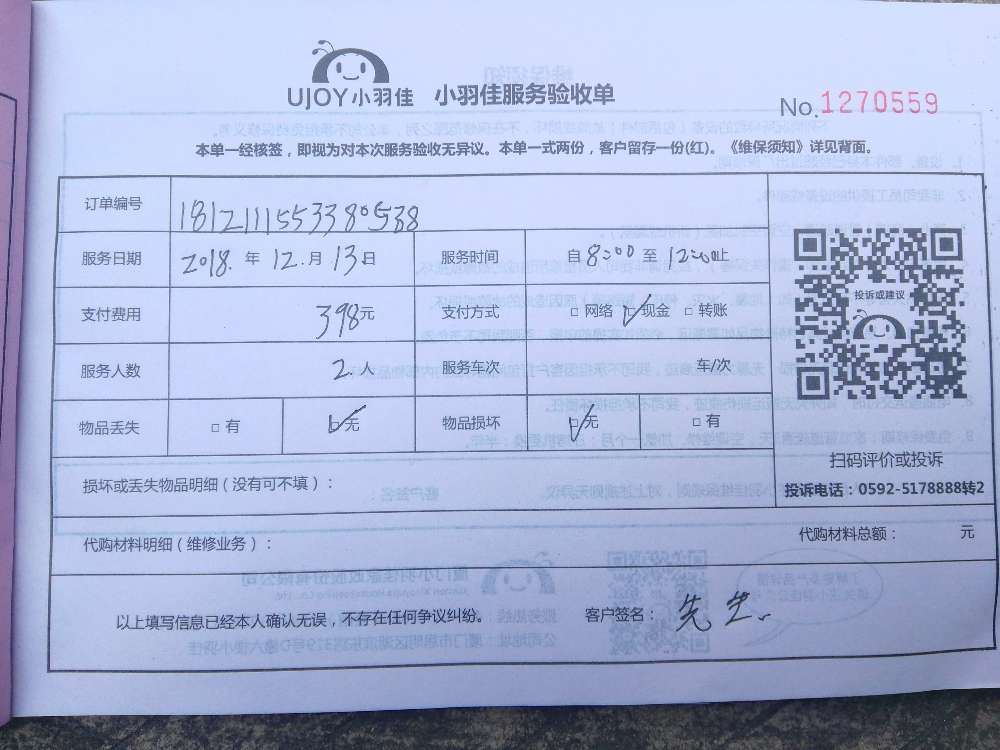 UJOY小羽佳 小羽佳服务验收单
No.1270559
本单一经核签，即视为对本次服务验收无异议。本单一式两份，客户留存一份(红)。《维保须知》详见背面。
订单编号 1812111553380538
服务日期 2018. 年 12. 月 13 日 服务时间 自 8:00 至 12:00 止
支付费用 398元 支付方式 □ 网络 ☑ 现金 □ 转账
服务人数 2. 人 服务车次 车/次
物品丢失 □ 有 ☑ 无 物品损坏 ☑ 无 □ 有
投诉或建议
扫码评价或投诉
投诉电话：0592-5178888转2
损坏或丢失物品明细（没有可不填）：
代购材料明细（维修业务）： 代购材料总额： 元
以上填写信息已经本人确认无误，不存在任何争议纠纷。 客户签名： 先生.